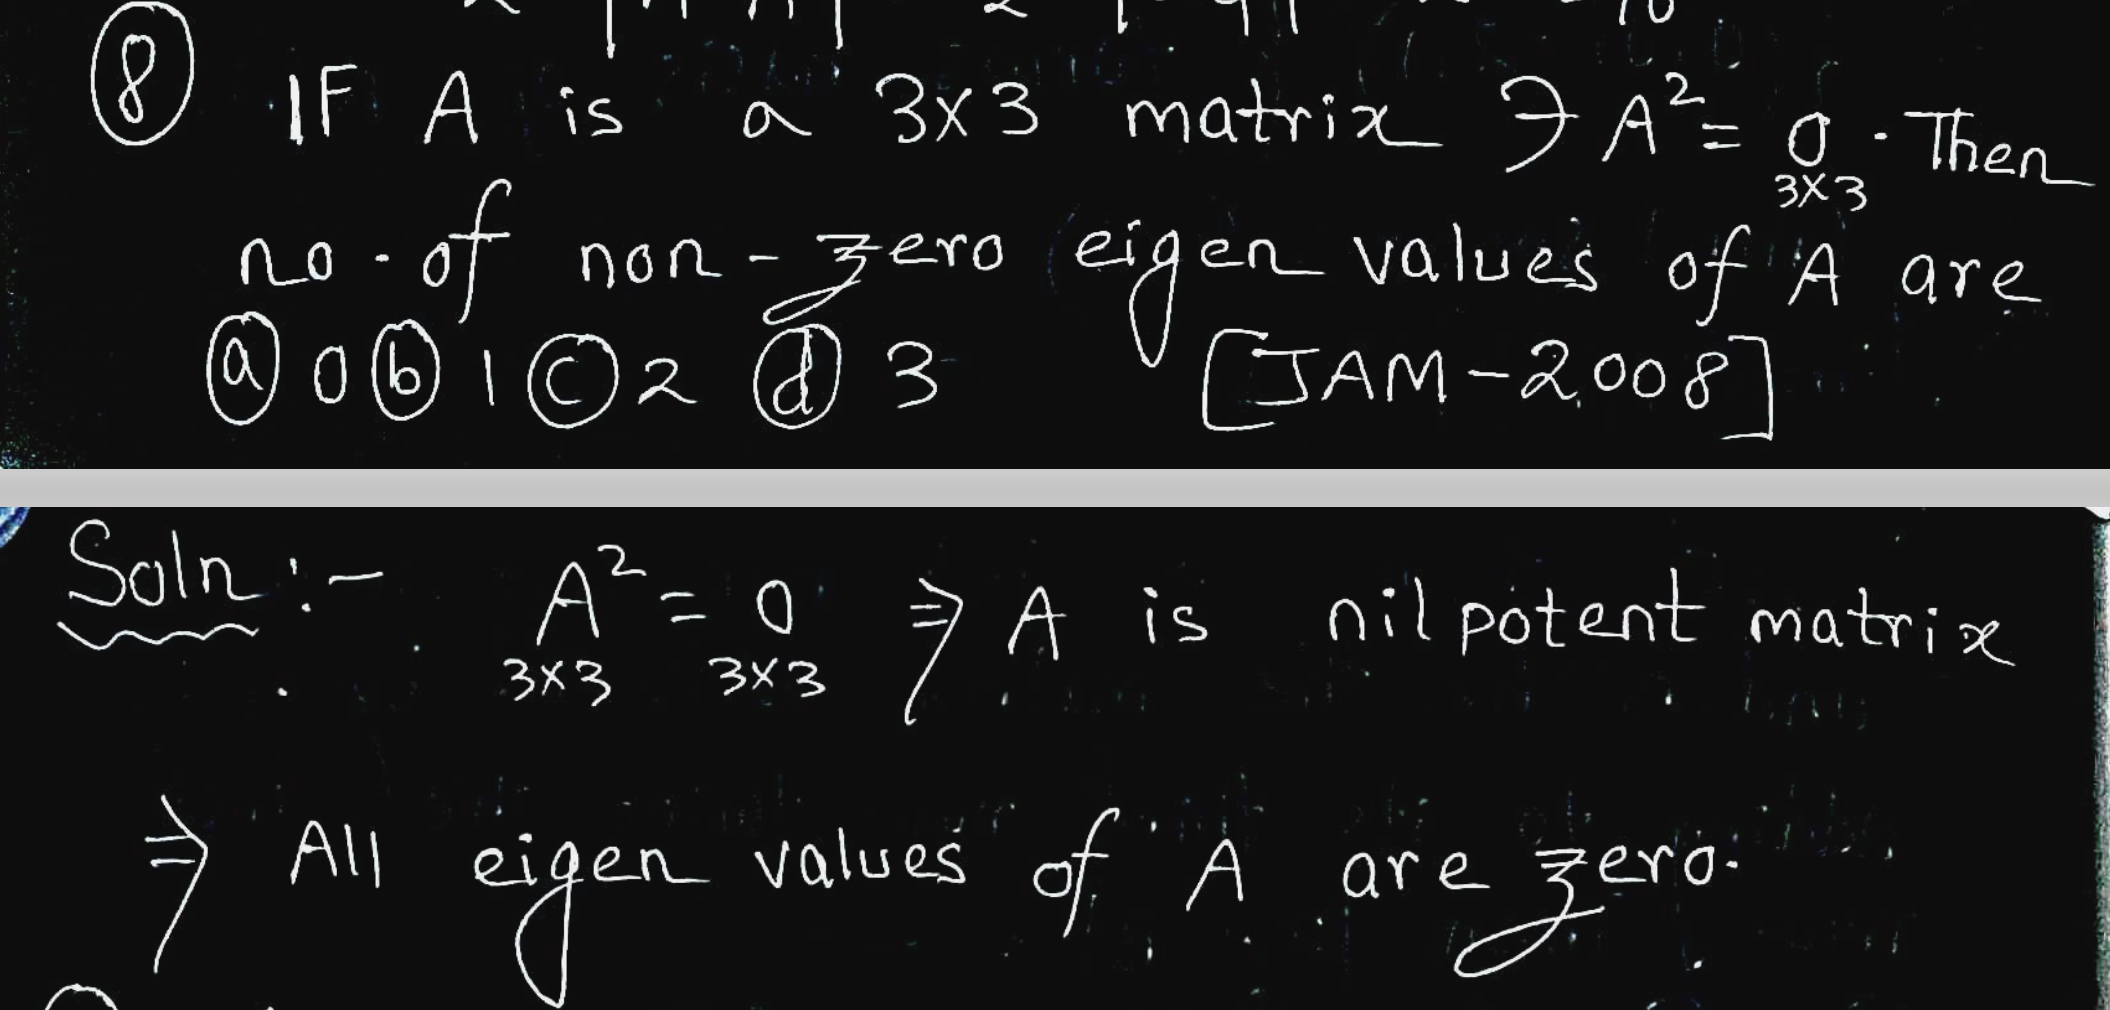 ⑧ IF A is a 3×3 matrix ∋ A² = 0 . Then
3×3
no. of non-zero eigen values of A are
ⓐ 0 ⓑ 1 ⓒ 2 ⓓ 3 [JAM-2008]
Soln :- A² = 0 ⇒ A is nilpotent matrix
3×3 3×3
⇒ All eigen values of A are zero.